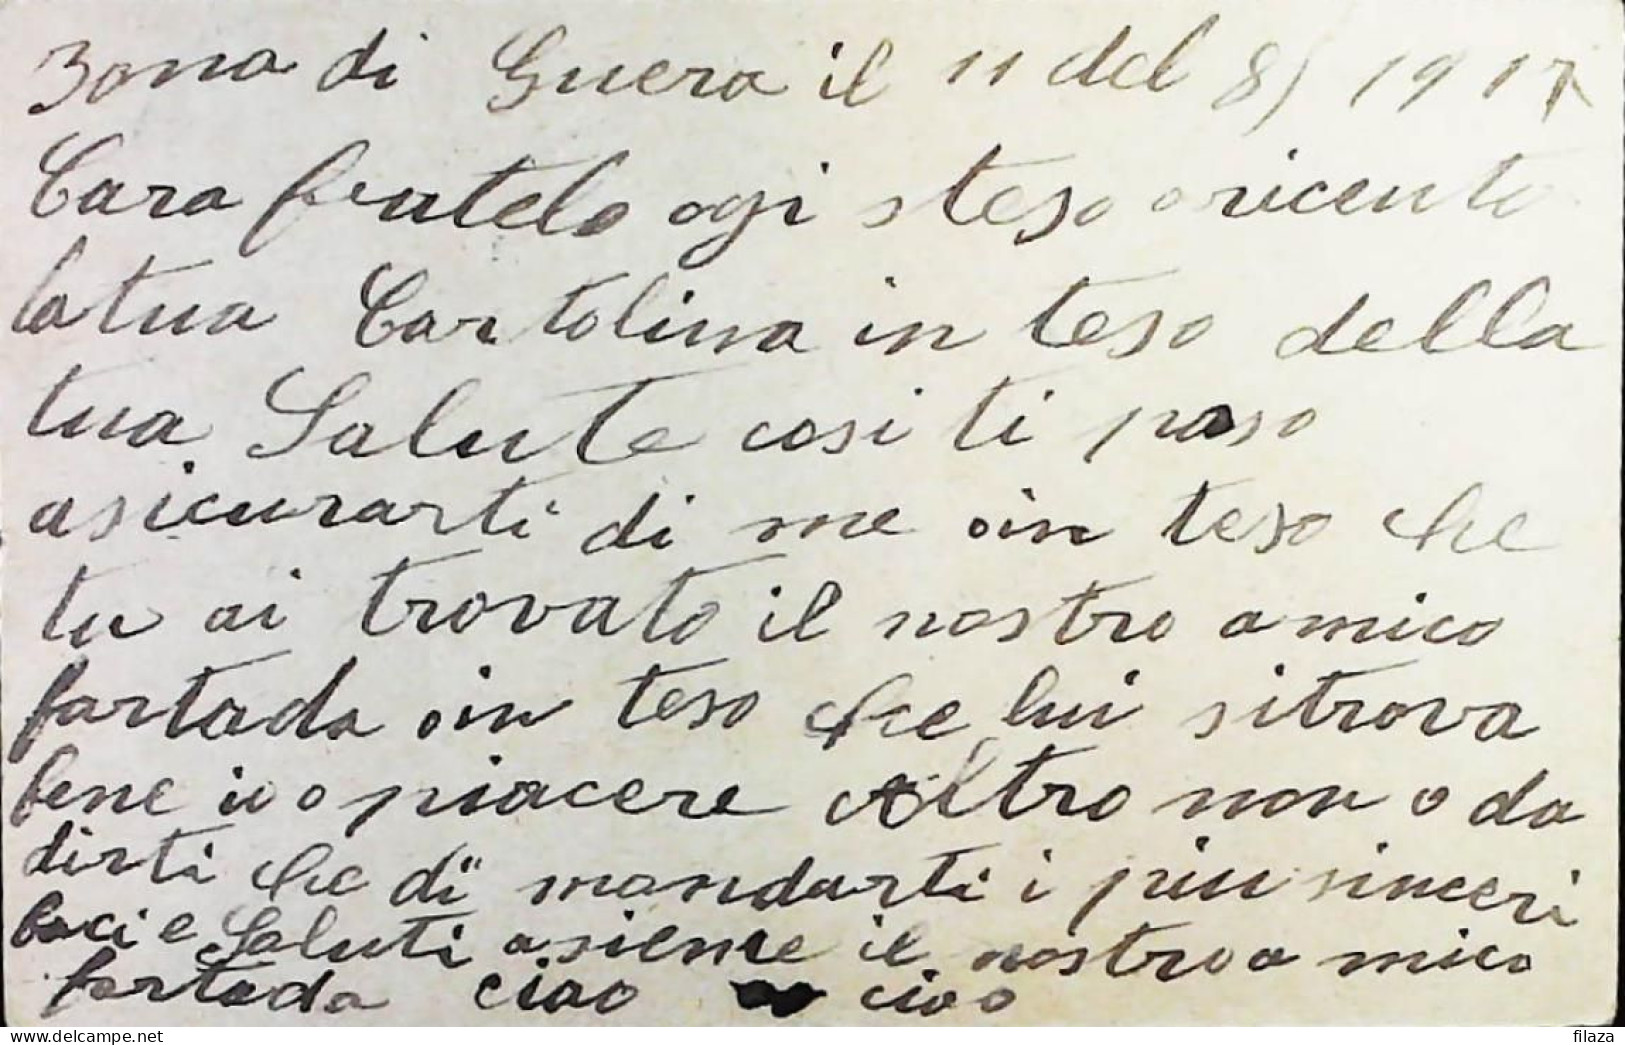 Zona di Guera il 11 del 8) 1917
Cara fratelo ogi steso o riceuto
la tua Cartolina in teso della
tua Salute cosi ti paso
asicurarti di me oin teso che
tu ai trovato il nostro amico
fartada oin teso che lui sitrova
bene io o piacere Altro non o da
dirti che di mandarti i piu sinceri
baci e Saluti asieme il nostro amico
fartada ciao ciao
filaza